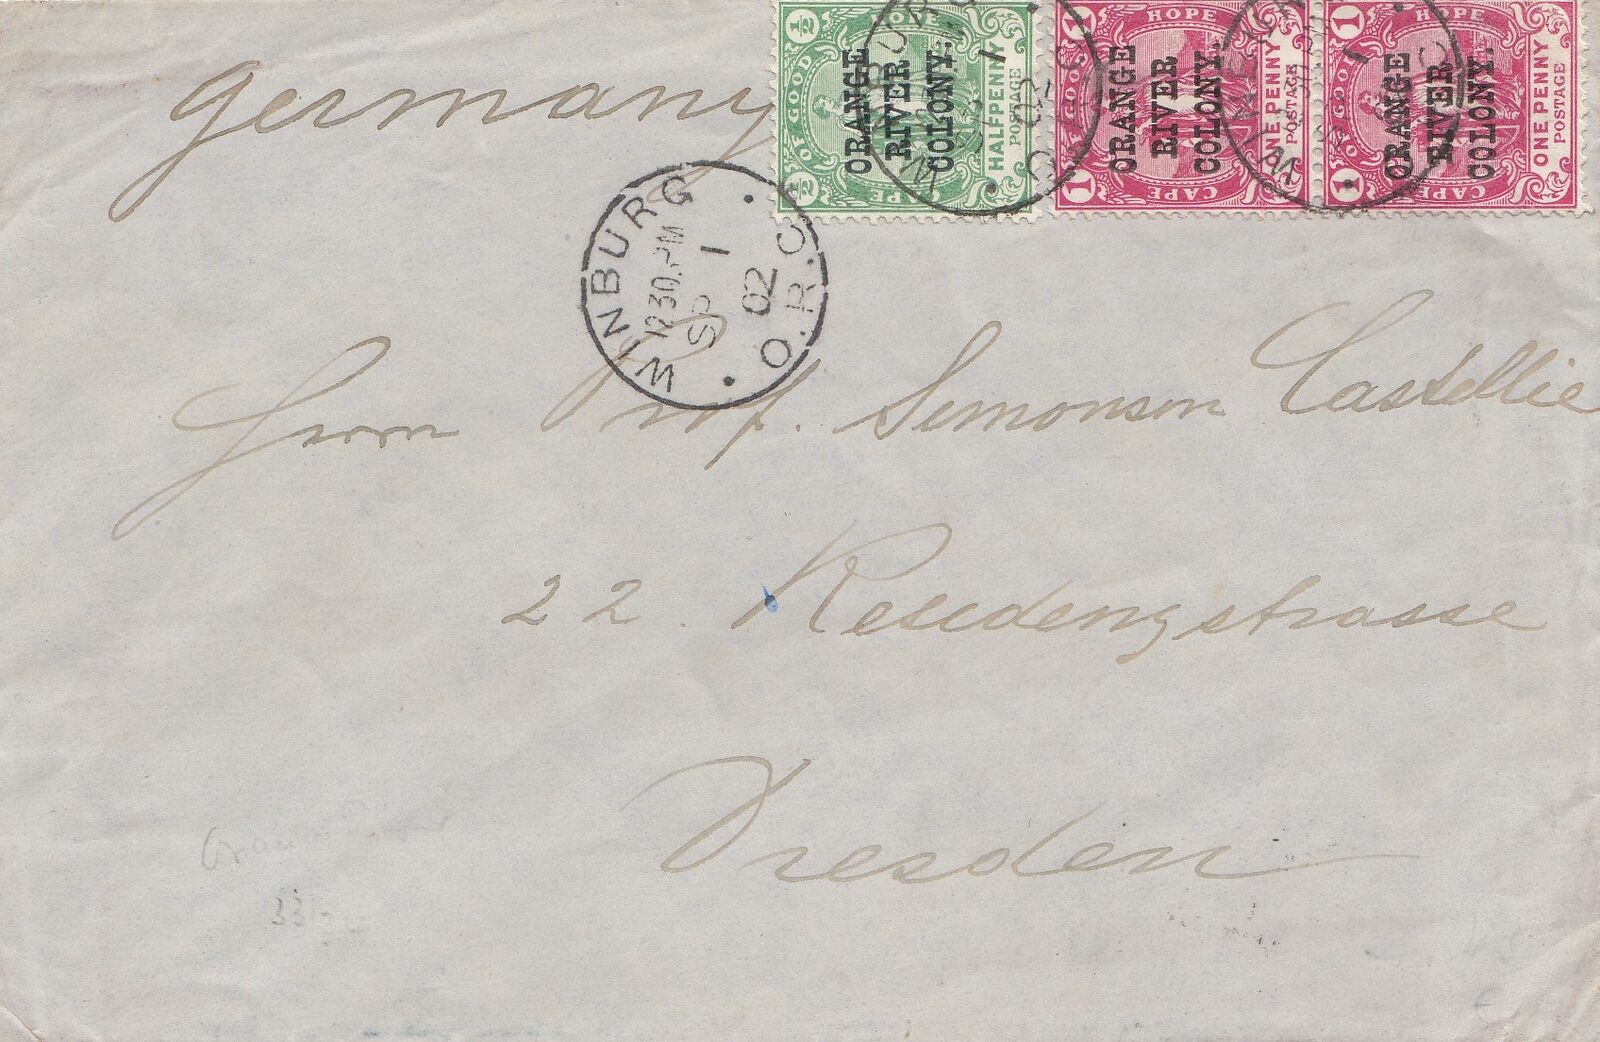 Germany
½ ½
OF GOOD HOPE
CAPE
HALFPENNY
POSTAGE
ORANGE
RIVER
COLONY.
1 1
OF GOOD HOPE
CAPE
ONE PENNY
POSTAGE
ORANGE
RIVER
COLONY.
1 1
OF GOOD HOPE
CAPE
ONE PENNY
POSTAGE
ORANGE
RIVER
COLONY.
WINBURG
12 30 PM
SP 1
02
O.R.C.
Herrn Prof. Simonson Castellie
22. Residenzstrasse
Dresden